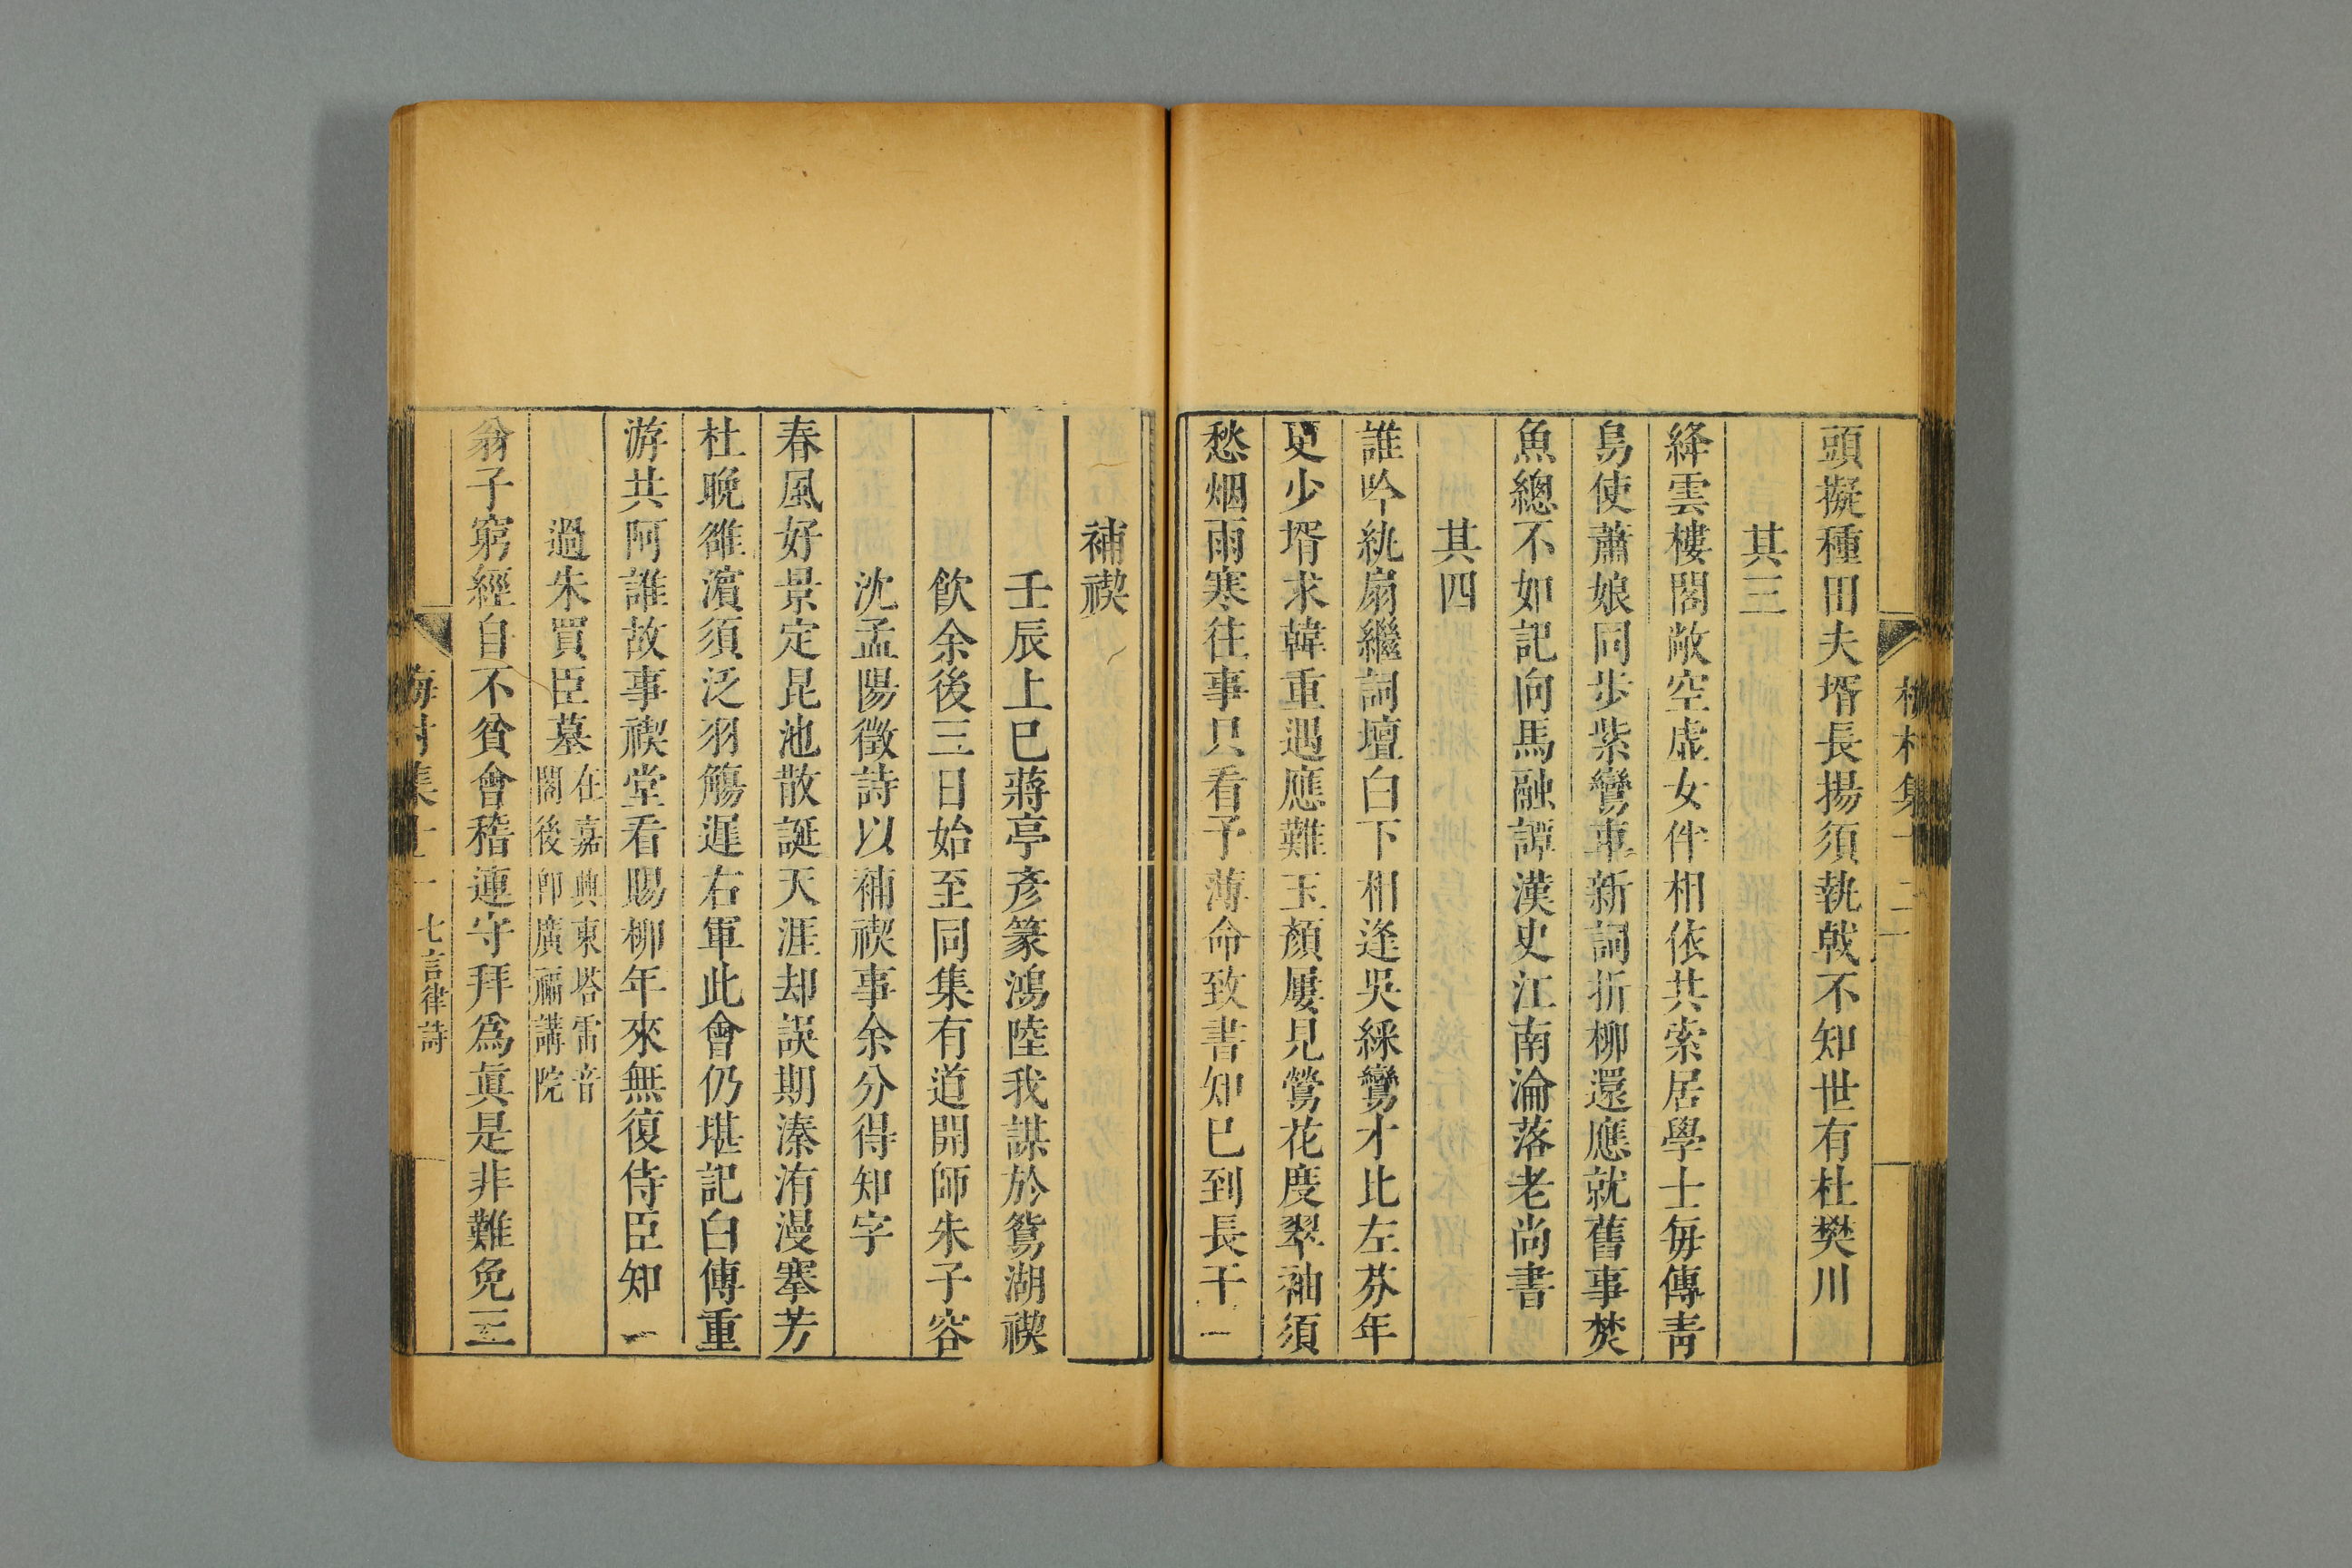 頭擬種田夫壻長揚須執戟不知世有杜樊川
其三
絳雲樓閣敞空虛女伴相依共索居學士每傳青
鳥使蕭娘同步紫鸞車新詞折柳還應就舊事焚
魚總不如記向馬融譚漢史江南淪落老尚書
其四
誰吟紈扇繼詞壇白下相逢吳綵鸞才比左芬年
更少壻求韓重遇應難玉顏屢見鶯花度翠袖須
愁烟雨寒往事只看予薄命致書知已到長干
補禊
壬辰上巳蔣亭彥篆鴻陸我謀於鴛湖禊
飲余後三日始至同集有道開師朱子容
沈孟陽徵詩以補禊事余分得知字
春風好景定昆池散誕天涯却誤期溱洧漫搴芳
杜晚雒濱須泛羽觴遲右軍此會仍堪記白傅重
游共阿誰故事禊堂看賜柳年來無復侍臣知
過朱買臣墓 在嘉興東塔雷音閣後即廣福講院
翁子窮經自不貧會稽連守拜爲眞是非難免三
梅村集 七言律詩